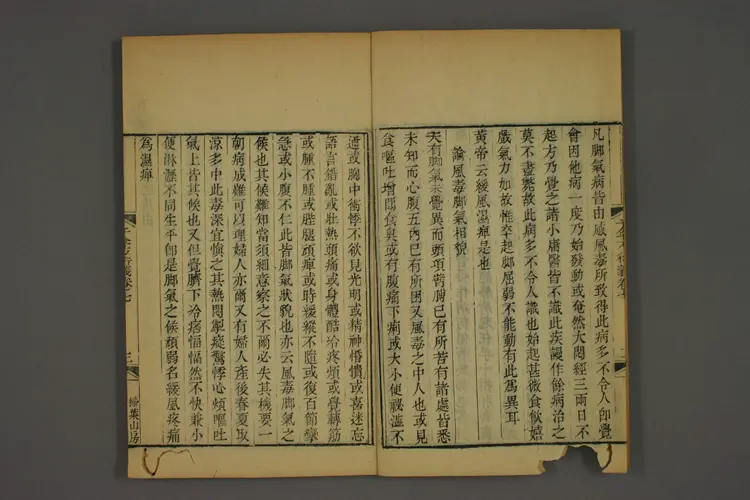 凡脚氣病皆由感風毒所致得此病多不令人即覺
會因他病一度乃始發動或奄然大悶經三兩日不
起方乃覺之諸小庸醫皆不識此疾謾作餘病治之
莫不盡斃故此病多不令人識也始起甚微食飲嬉
戲氣力如故惟卒起脚屈弱不能動有此為異耳
黃帝云緩風濕痺是也
論風毒脚氣相貌
夫有脚氣未覺異而頭項臂膊已有所苦有諸處皆悉
未知而心腹五內已有所困又風毒之中人也或見
食嘔吐增憎食臭或有腹痛下痢或大小便祕澁不
通或胸中衝悸不欲見光明或精神惛憒或喜迷忘
語言錯亂或壯熱頭痛或身體酷冷疼煩或覺轉筋
或腫不腫或䏶腿頑痺或時緩縱不隨或復百節攣
急或小腹不仁此皆脚氣狀貌也亦云風毒脚氣之
候也其候難知當須細意察之不爾必失其機要一
朝病成難可以理婦人亦爾又有婦人產後春夏取
涼多中此毒深宜慎之其熱悶掣瘲驚悸心煩嘔吐
氣上皆其候也又但覺臍下冷痞愊愊然不快兼小
便淋瀝不同生平即是脚氣之候頑弱名緩風疼痛
為濕痺
千金方衍義卷七
三
掃葉山房